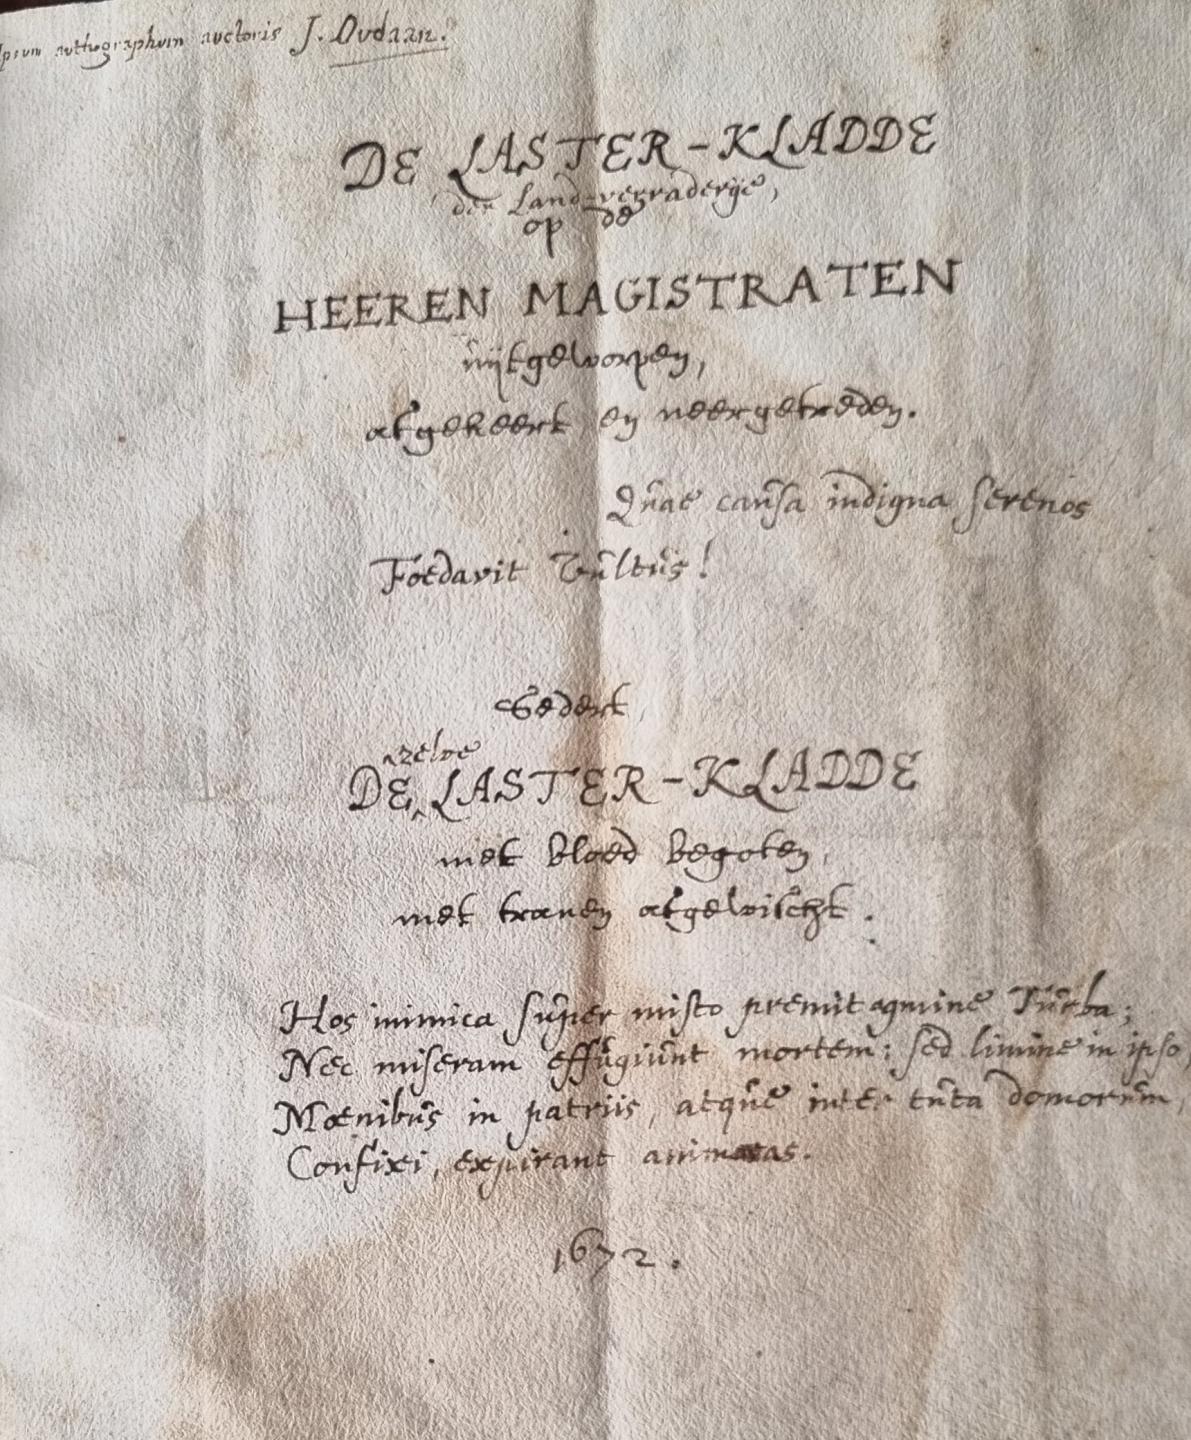 Ipsum authographum auctoris J. Oudaan.
DE LASTER-KLADDE
der Land-verraderije,
op de
HEEREN MAGISTRATEN
uijtgeworpen,
afgekeert en neergetreden.
Quae causa indigna serenos
Foedavit Vultus!
Sedert,
zelve
DE LASTER-KLADDE
met bloed begoten,
met tranen afgewischt.
Hos inimica super misto premit agmine Turba;
Nec miseram effugiunt mortem; sed limine in ipso,
Moenibus in patriis, atque inter tuta domorum,
Confixi, expirant animas.
1672.